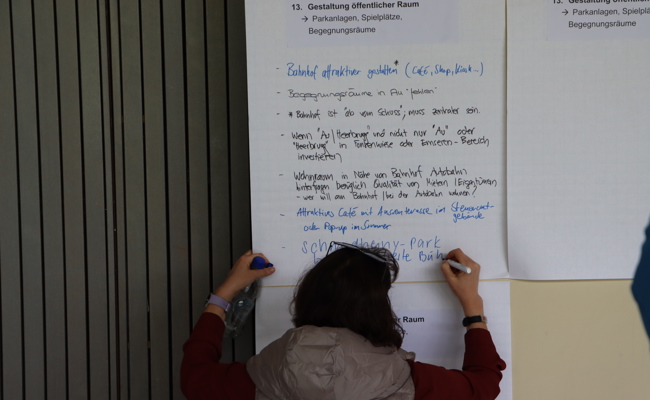 13. Gestaltung öffentlicher Raum
→ Parkanlagen, Spielplätze,
Begegnungsräume
- Bahnhof attraktiver gestalten* (Café, Shop, Kiosk...)
- Begegnungsräume in Au "fehlen"
- * Bahnhof ist "ab vom Schuss"; muss zentraler sein.
- Wenn "Au/Heerbrugg" und nicht nur "Au" oder
"Heerbrugg" in oder Bereich
investieren
- Wohnraum in Nähe von Bahnhof Autobahn
hinterfragen bezüglich Qualität von Mietern/Eigentümern
- wer will am Bahnhof/bei der Autobahn wohnen?
- Attraktives Café mit Aussenterrasse im
gebäude
oder Pop-up im Sommer
- park
Büh
er Raum
13. Gestaltung öffentl
→ Parkanlagen, Spielplä
Begegnungsräume